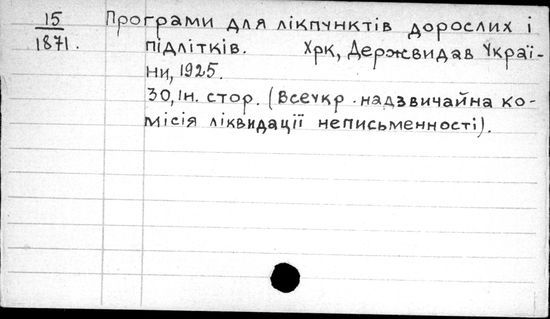 15 Програми для лікпунктів дорослих і
1871. підлітків. Хрк, Держвидав Украї-
ни, 1925.
30, ін. стор. (Всеукр. надзвичайна ко-
місія ліквидації неписьменності).